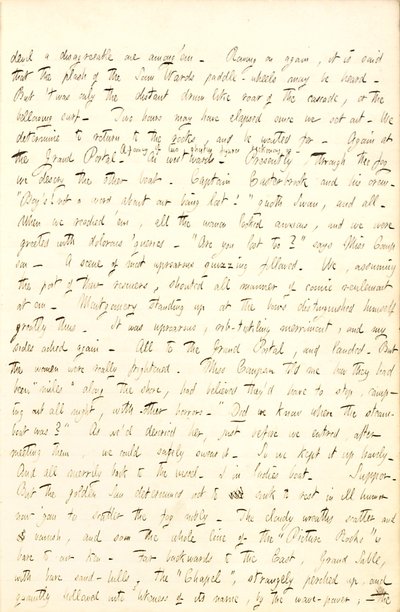 devil a disagreeable one among 'em. Rowing on again, it is said
that the plash of the Sam Wards paddle-wheels may be heard.
But 'twas only the distant drum like roar of the cascade, or the
bellowing surf. Two hours may have elapsed since we set out. We
determine to return to the rocks and be waited for. Again at
the Grand Portal.
All westward. Presently through the fog
we descry the other boat. Captain Easterbrook and his crew.
"Boys! not a word about our being lost!" quoth Swan, and all.
When we reached 'em, all the women looked anxious, and we were
greeted with dolorous queries. "Are you lost to?" says Miss
A scene of most uproarious quizzing followed. We, assuming
the part of their rescuers, shouted all manner of comic
at em. Montgomery standing up at the bows distinguished himself
greatly thus. It was uproarious, rib-tickling merriment, and my
sides ached again. All to the Grand Portal, and landed. But
the women were really frightened. Miss told me how they had
been "miles" along the shore, had believed they'd have to stop, camp-
ing out all night, with other horrors. "Did we know where the steam-
boat was?" As we'd descried her, just before we entered, after
meeting them, we could safely swear it. So we kept it up bravely.
And all merrily back to the vessel. I in ladies boat. Supper.
But the golden Sun determined not to sink to rest in ill humor
now 'gan to scatter the fog nobly. The cloudy wreaths scatter and
vanish, and soon the whole line of the "Picture Rocks" is
bare to our ken. Far backwards to the East, Grand Sable,
with bare sand-hills, the "Chapel", strangely perched up, and
quaintly hollowed into likeness of its name, by the wave-power; the